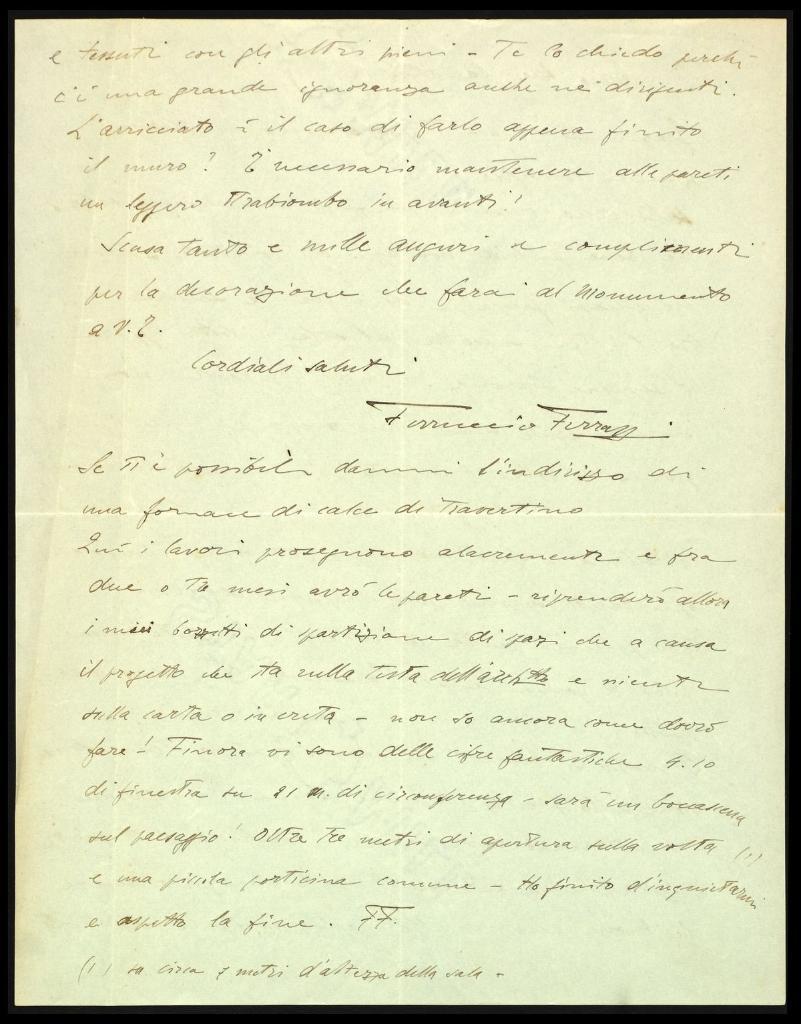 e tessuti con gli altri pieni - Te lo chiedo perchè
c'è una grande ignoranza anche nei dirigenti.
L'arricciato è il caso di farlo appena finito
il muro? È necessario mantenere alle pareti
un leggero strabiombo in avanti!
Scusa tanto e mille auguri e complimenti
per la decorazione che farai al Monumento
a V. E.
Cordiali saluti
Ferruccio Ferrazzi
Se ti è possibile dammi l'indirizzo di
una fornace di calce di Travertino
Quì i lavori proseguono alacremente e fra
due o tre mesi avrò le pareti - riprenderò allora
i miei bozzetti di partizione di spazi che a causa
il progetto che sta nella testa dell'archtto e niente
sulla carta o in creta - non so ancora come dovrò
fare! Finora vi sono delle cifre fantastiche 4.10
di finestra su 21 m. di circonferenza - sarà un boccascena
sul paesaggio! Oltre tre metri di apertura sulla volta (1)
e una piccola porticina comune - Ho finito d'inquietarmi
e aspetto la fine. FF.
(1) su circa metri d'altezza della sala -